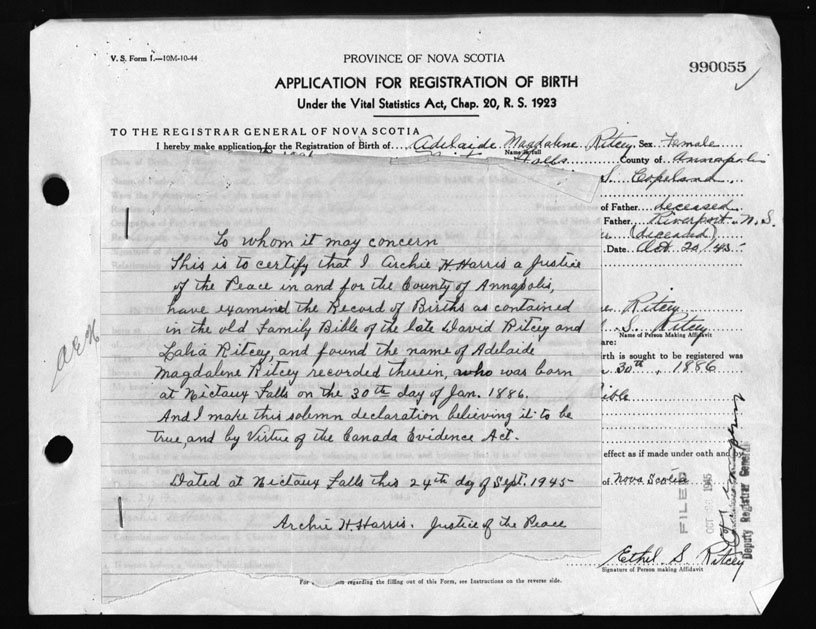 V. S. Form 1.—10M-10-44
PROVINCE OF NOVA SCOTIA
990055
APPLICATION FOR REGISTRATION OF BIRTH
Under the Vital Statistics Act, Chap. 20, R. S. 1923
TO THE REGISTRAR GENERAL OF NOVA SCOTIA
I hereby make application for the Registration of Birth of Adelaide Magdalene Ritcey Sex Female
Name in full
Falls County of Annapolis
S. Copeland
of Father deceased
Father Riverport N. S.
(deceased)
Date Oct 20/45
To whom it may concern
This is to certify that I Archie H. Harris a Justice
of the Peace in and for the County of Annapolis,
have examined the Record of Births as contained
in the old Family Bible of the late David Ritcey and
Lalia Ritcey, and found the name of Adelaide
Magdalene Ritcey recorded therein, who was born
at Nictaux Falls on the 30th day of Jan. 1886.
And I make this solemn declaration believing it to be
true and by Virtue of the Canada Evidence Act.
Dated at Nictaux Falls this 24th day of Sept. 1945
Archie H. Harris. Justice of the Peace
Ritcey
S. Ritcey
Name of Person Making Affidavit
are:
rth is sought to be registered was
30th, 1886
ible
effect as if made under oath and by
of Nova Scotia
FILED
OCT 1945
Deputy Registrar General
Ethel S. Ritcey
Signature of Person making Affidavit
For regarding the filling out of this Form, see Instructions on the reverse side.